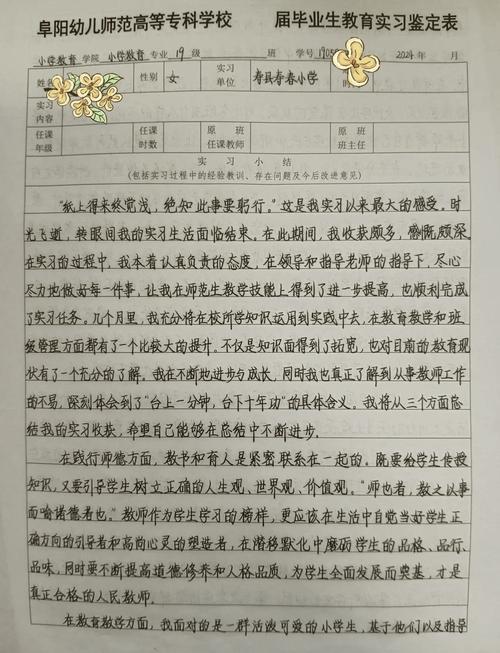 阜阳幼儿师范高等专科学校 届毕业生教育实习鉴定表
小学教育 学院 小学教育 专业 19 级 班 学号 1905 2021 年 月
性别 女 实习单位 寿县寿春小学 时
实习内容
任课年级 任课时数 原班任课教师 原班班主任
实习小结
(包括实习过程中的经验教训、存在问题及今后改进意见)
“纸上得来终觉浅,绝知此事要躬行。”这是我实习以来最大的感受。时
光飞逝,转眼间我的实习生活面临结束。在此期间,我收获颇多,感慨颇深。
在实习的过程中,我本着认真负责的态度,在领导和指导老师的指导下,尽心
尽力地做好每一件事,让我在师范生教学技能上得到了进一步提高,也顺利完成
了实习任务。几个月里,我充分将在校所学知识运用到实践中去,在教育教学和班
级管理方面都有了一个比较大的提升。不仅是知识面得到了拓宽,也对目前的教育现
状有了一个充分的了解。我在不断地进步与成长,同时我也真正了解到从事教师工作
的不易,深刻体会到了“台上一分钟,台下十年功”的具体含义。我将从三个方面总
结我的实习收获,希望自己能够在总结中不断进步。
在践行师德方面,教书和育人是紧密联系在一起的。既要给学生传授
知识,又要引导学生树立正确的人生观、世界观、价值观。“师也者,教之以事
而喻诸德者也。”教师作为学生学习的榜样,更应该在生活中自觉当好学生正
确方向的引导者和高尚心灵的塑造者,在潜移默化中磨砺学生的品格、品行、
品味,同时要不断提高道德修养和人格品质,为学生全面发展而奠基,才是
真正合格的人民教师。
在教育教学方面,我面对的是一群活泼可爱的小学生,基于他们以及指导